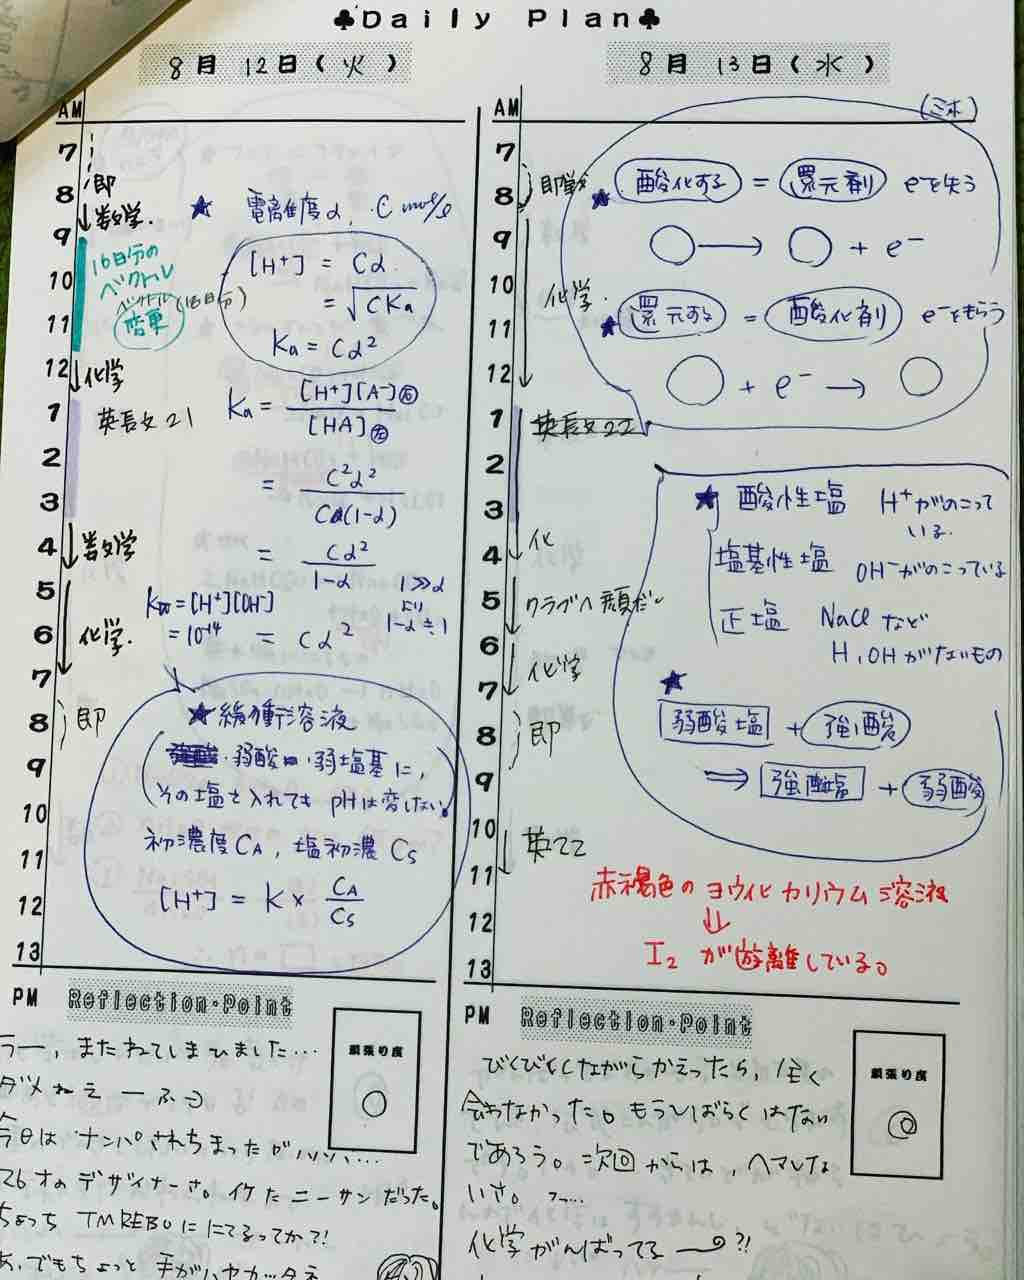 ♣Daily Plan♣
8月 12日(火)
AM
7
8
9
10
11
12
1
2
3
4
5
6
7
8
9
10
11
12
13
即
数学.
16日分の
ベクトル
(18日分)
化学
英長文21
数学
化学.
即
★ 電離度α, C mol/l
[H⁺] = Cα
= √CKa
Ka = Cα²
Ka = [H⁺][A⁻]右 / [HA]左
= C²α² / C(1-α)
= Cα² / 1-α
1≫α
より
1-α≒1
= Cα²
Kw=[H⁺][OH⁻]
=10⁻¹⁴
★緩衝溶液
弱酸・弱塩基に,
その塩を入れても pHは変しない。
初濃度CA, 塩初濃Cs
[H⁺] = K × CA / Cs
PM Reflection・Point
頑張り度
○
うー, またねてしまいました…
ダメねえ ーふう
今日は ナンパされちまったが
26才のデザイナーさ。イケたニーサンだった。
ちょっち TMREBOににてるってか?!
あ、でもちょっと 手が
8月 13日(水)
AM
7
8
9
10
11
12
1
2
3
4
5
6
7
8
9
10
11
12
13
即
化学.
英長文22
化
クラブへ顔だし
化学
即
英22
★ 酸化する = 還元剤 e⁻を失う
○ → ○ + e⁻
★ 還元する = 酸化剤 e⁻をもらう
○ + e⁻ → ○
★ 酸性塩 H⁺がのこって
いる.
塩基性塩 OH⁻がのこっている
正塩 NaClなど
H,OHがないもの
★
弱酸塩 + 強酸
⇒ 強酸塩 + 弱酸
赤褐色の ヨウ化カリウム溶液
↓
I₂ が遊離している。
PM Reflection・Point
頑張り度
◎
びくびくしながらかえったら, 全く
会わなかった。もうしばらくはない
であろう。次回からは, ヘマしな
いさ。
化学がんばってる ?!